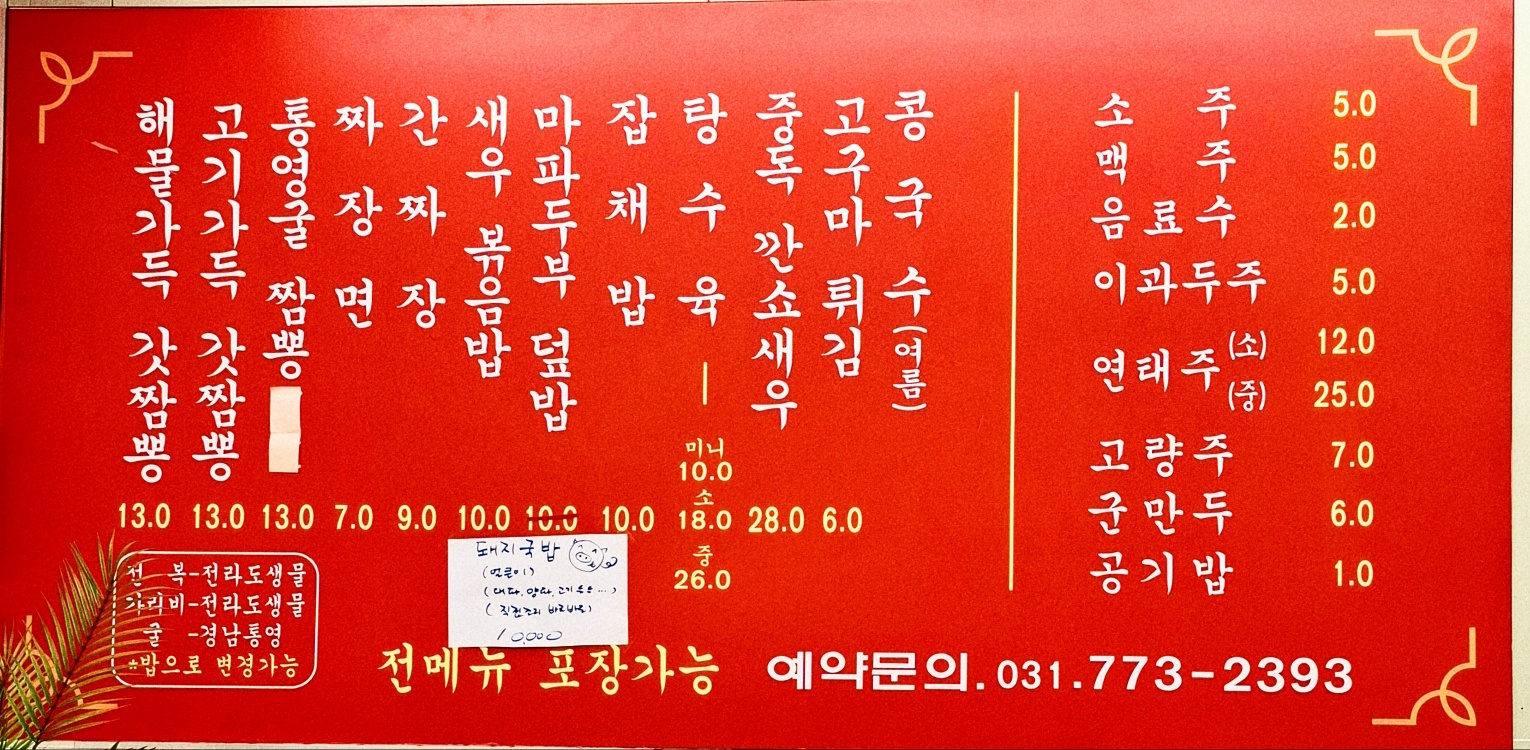 해물가득 갓짬뽕 13.0
고기가득 갓짬뽕 13.0
통영굴 짬뽕 13.0
짜장면 7.0
간짜장 9.0
새우 볶음밥 10.0
마파두부 덮밥 10.0
잡채밥 10.0
탕수육
미니
10.0
소
18.0
중
26.0
중독 깐쇼새우 28.0
고구마 튀김 6.0
콩국수(여름)
소주 5.0
맥주 5.0
음료수 2.0
이과두주 5.0
연태주 (소) 12.0
(중) 25.0
고량주 7.0
군만두 6.0
공기밥 1.0
전 복-전라도생물
가리비-전라도생물
굴 -경남통영
*밥으로 변경가능
돼지국밥
(얼큰이)
(대파, 양파, 고기 듬뿍...)
(직접조리 바로바로)
10,000
전메뉴 포장가능
예약문의. 031.773-2393